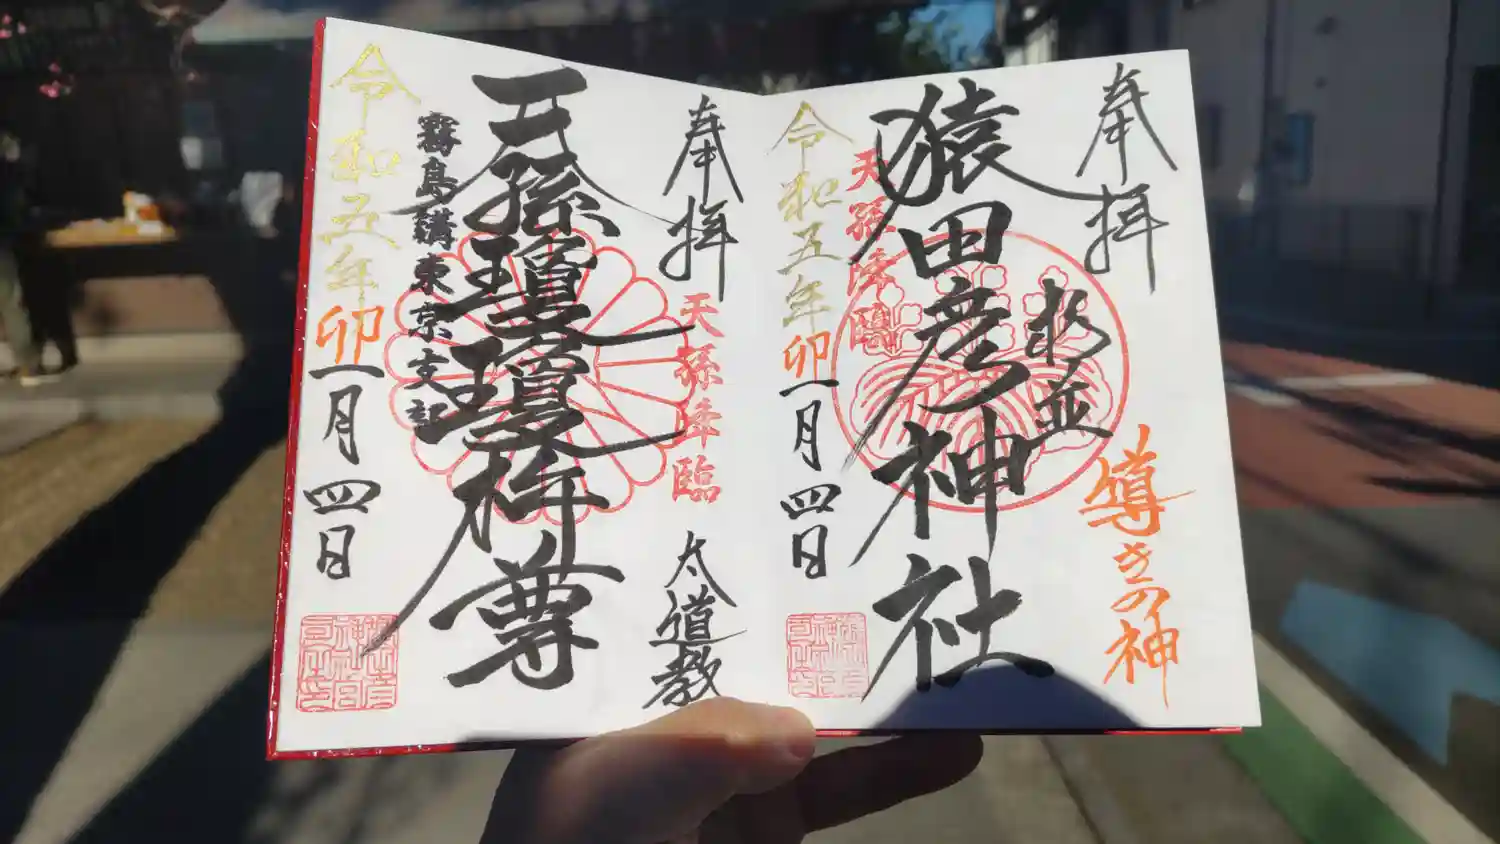 奉拝
杉並
猿田彦神社
導きの神
天孫降臨
令和五年卯一月四日
奉拝
天孫降臨
太道教
天孫瓊瓊杵尊
霧島講東京支部
令和五年卯一月四日